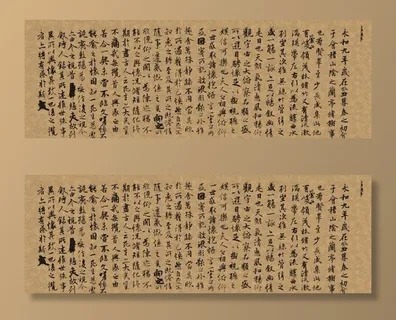 永和九年歲在癸丑暮春之初會
于會稽山陰之蘭亭脩禊事
也羣賢畢至少長咸集此地
有崇山峻領茂林脩竹又有清流激
湍暎帶左右引以為流觴曲水
列坐其次雖無絲竹管弦之
盛一觴一詠亦足以暢敘幽情
是日也天朗氣清惠風和暢仰
觀宇宙之大俯察品類之盛
所以遊目騁懷足以極視聽之
娛信可樂也夫人之相與俯仰
一世或取諸懷抱悟言一室之內
或因寄所託放浪形骸之外雖
趣舍萬殊靜躁不同當其欣
於所遇蹔得於己快然自足不
知老之將至及其所之既惓情
隨事遷感慨係之矣向之所
欣俛仰之間以為陳迹猶不
能不以之興懷況脩短隨化終
期於盡古人云死生亦大矣豈
不痛哉每攬昔人興感之由
若合一契未嘗不臨文嗟悼不
能喻之於懷固知一死生為虛
誕齊彭殤為妄作後之視今
亦由今之視昔悲夫故列
敘時人錄其所述雖世殊事
異所以興懷其致一也後之攬
者亦將有感於斯文
永和九年歲在癸丑暮春之初會
于會稽山陰之蘭亭脩禊事
也羣賢畢至少長咸集此地
有崇山峻領茂林脩竹又有清流激
湍暎帶左右引以為流觴曲水
列坐其次雖無絲竹管弦之
盛一觴一詠亦足以暢敘幽情
是日也天朗氣清惠風和暢仰
觀宇宙之大俯察品類之盛
所以遊目騁懷足以極視聽之
娛信可樂也夫人之相與俯仰
一世或取諸懷抱悟言一室之內
或因寄所託放浪形骸之外雖
趣舍萬殊靜躁不同當其欣
於所遇蹔得於己快然自足不
知老之將至及其所之既惓情
隨事遷感慨係之矣向之所
欣俛仰之間以為陳迹猶不
能不以之興懷況脩短隨化終
期於盡古人云死生亦大矣豈
不痛哉每攬昔人興感之由
若合一契未嘗不臨文嗟悼不
能喻之於懷固知一死生為虛
誕齊彭殤為妄作後之視今
亦由今之視昔悲夫故列
敘時人錄其所述雖世殊事
異所以興懷其致一也後之攬
者亦將有感於斯文